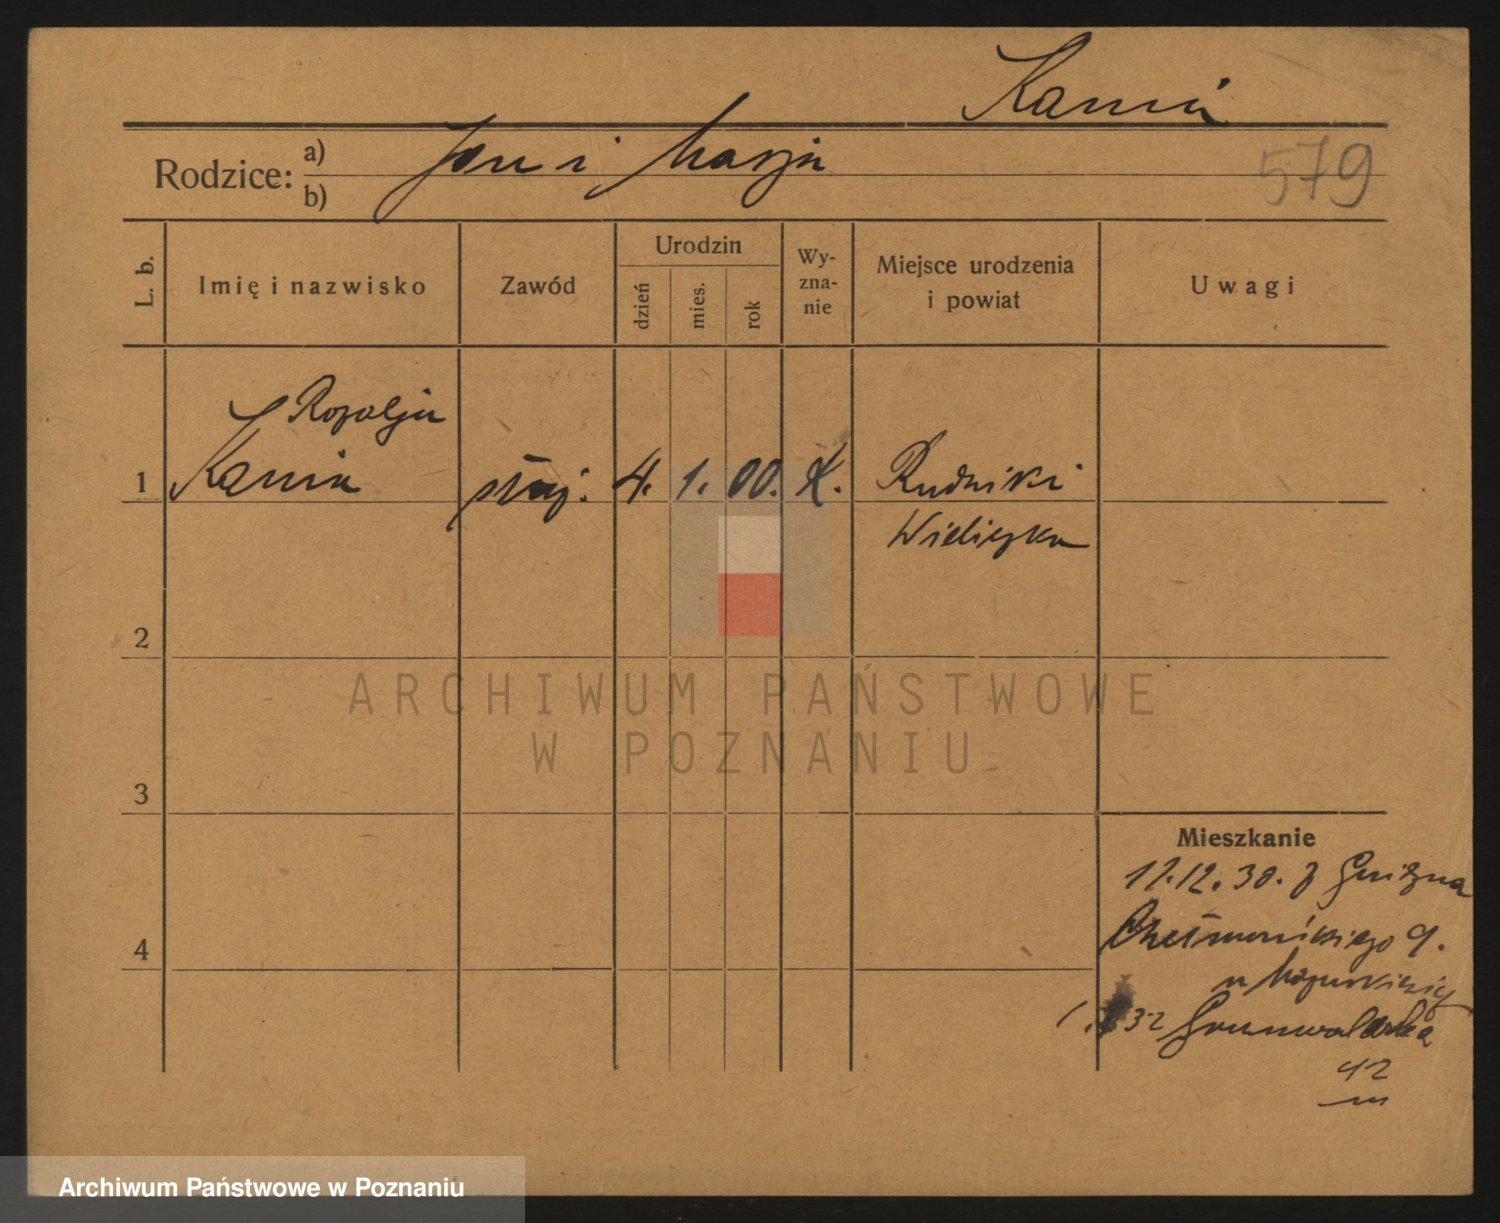 Kania
Rodzice: a) b) Jan i Marja
579
L. b.
Imię i nazwisko
Zawód
Urodzin
dzień
mies.
rok
Wy-
zna-
nie
Miejsce urodzenia
i powiat
Uwagi
Rozalja
1 Kania służ. 4. 1. 00. K. Rudniki
Wieliczka
2
3
4
ARCHIWUM PAŃSTWOWE
W POZNANIU
Mieszkanie
17.12.30. z Gniezna
Chełmońskiego 9.
u
1. 32 Grunwaldzka
42
m
Archiwum Państwowe w Poznaniu